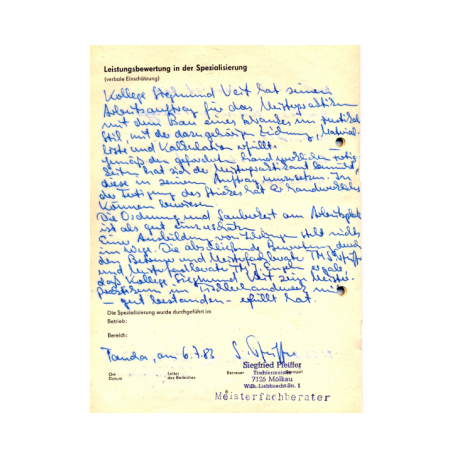 Leistungsbewertung in der Spezialisierung
(verbale Einschätzung)
Kollege Siegmund Veit hat seinen
Arbeitsauftrag für das Meisterpraktikum
mit dem Bau eines Schrankes im
Stil, mit der dazugehörigen Zeichnung, Material-
liste und Kalkulation erfüllt.
Gemäß den geforderten handwerklichen
hat sich der Meisterpraktikant bemüht,
diese in seinem Auftrag umzusetzen. In
der Fertigung des Stückes hat er handwerkliches
Können bewiesen.
Die Ordnung und Sauberkeit am Arbeitsplatz
ist als gut einzuschätzen.
Eine Ausbildung von Lehrlingen steht nichts
im Wege. Die abschließende Bewertung durch
den Betreuer und Meisterfachberater
und Meisterfachberater ergab,
daß Kollege Siegmund Veit sein Meister-
praktikum im Tischlerhandwerk mit
- gut bestanden - erfüllt hat.
Die Spezialisierung wurde durchgeführt im
Betrieb:
Bereich:
am 6.7.83 S. Pfeiffer
Siegfried Pfeiffer
Tischlermeister
7125 Mölkau
Wilh.-Liebknecht-Str. 1
Ort
Datum
Leiter
des Bereiches
Betreuer
Stempel
Meisterfachberater